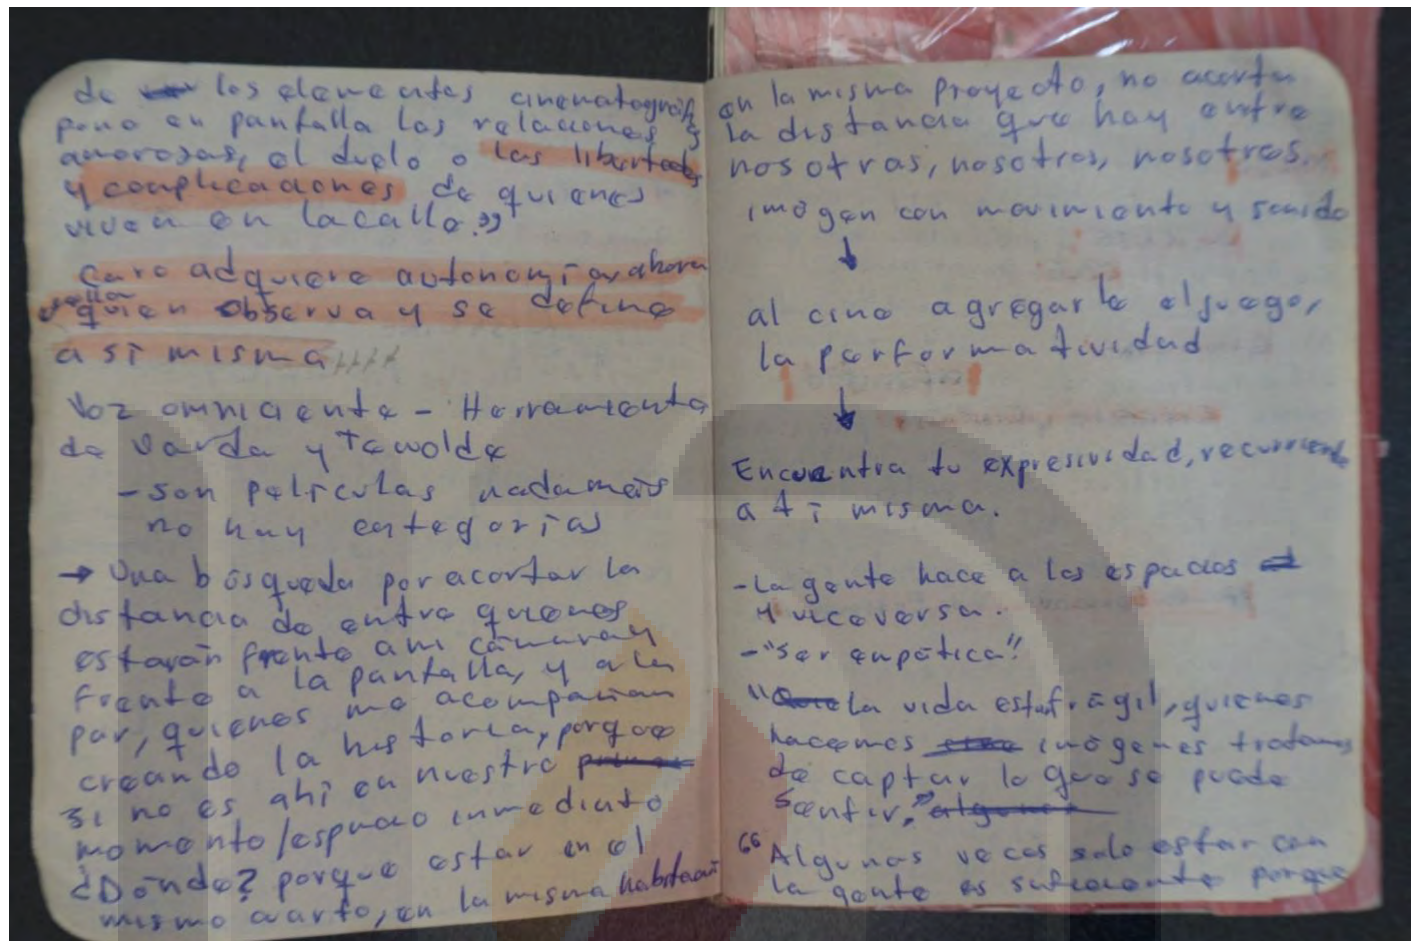 de los elementos cinematográficos
pone en pantalla las relaciones
amorosas, el duelo o las libertades
y complicaciones de quienes
viven en la calle."
Caro adquiere autonomía, ahora
es ella
quien observa y se define
a sí misma
Voz omniciente - Herramienta
de Varda y Tewolde
- son películas nadamás
no hay categorías
→ Una búsqueda por acortar la
distancia de entre quienes
estarán frente a mi cámara y
frente a la pantalla, y a la
par, quienes me acompañan
creando la historia, porque
si no es ahí en nuestro
momento/espacio inmediato
¿Dónde? porque estar en el
mismo cuarto, en la misma habitación
en la misma proyecto, no acorta
la distancia que hay entre
nosotras, nosotros, nosotres.
imágen con movimiento y sonido
↓
al cine agregarle el juego,
la performatividad
↓
Encuentra tu expresividad, recurriendo
a ti misma.
- La gente hace a los espacios
y viceversa.
- "Ser empática".
"La vida es tan frágil, quienes
hacemos imágenes tratamos
de captar lo que se puede
sentir,"
"Algunas veces solo estar con
la gente es suficiente porque